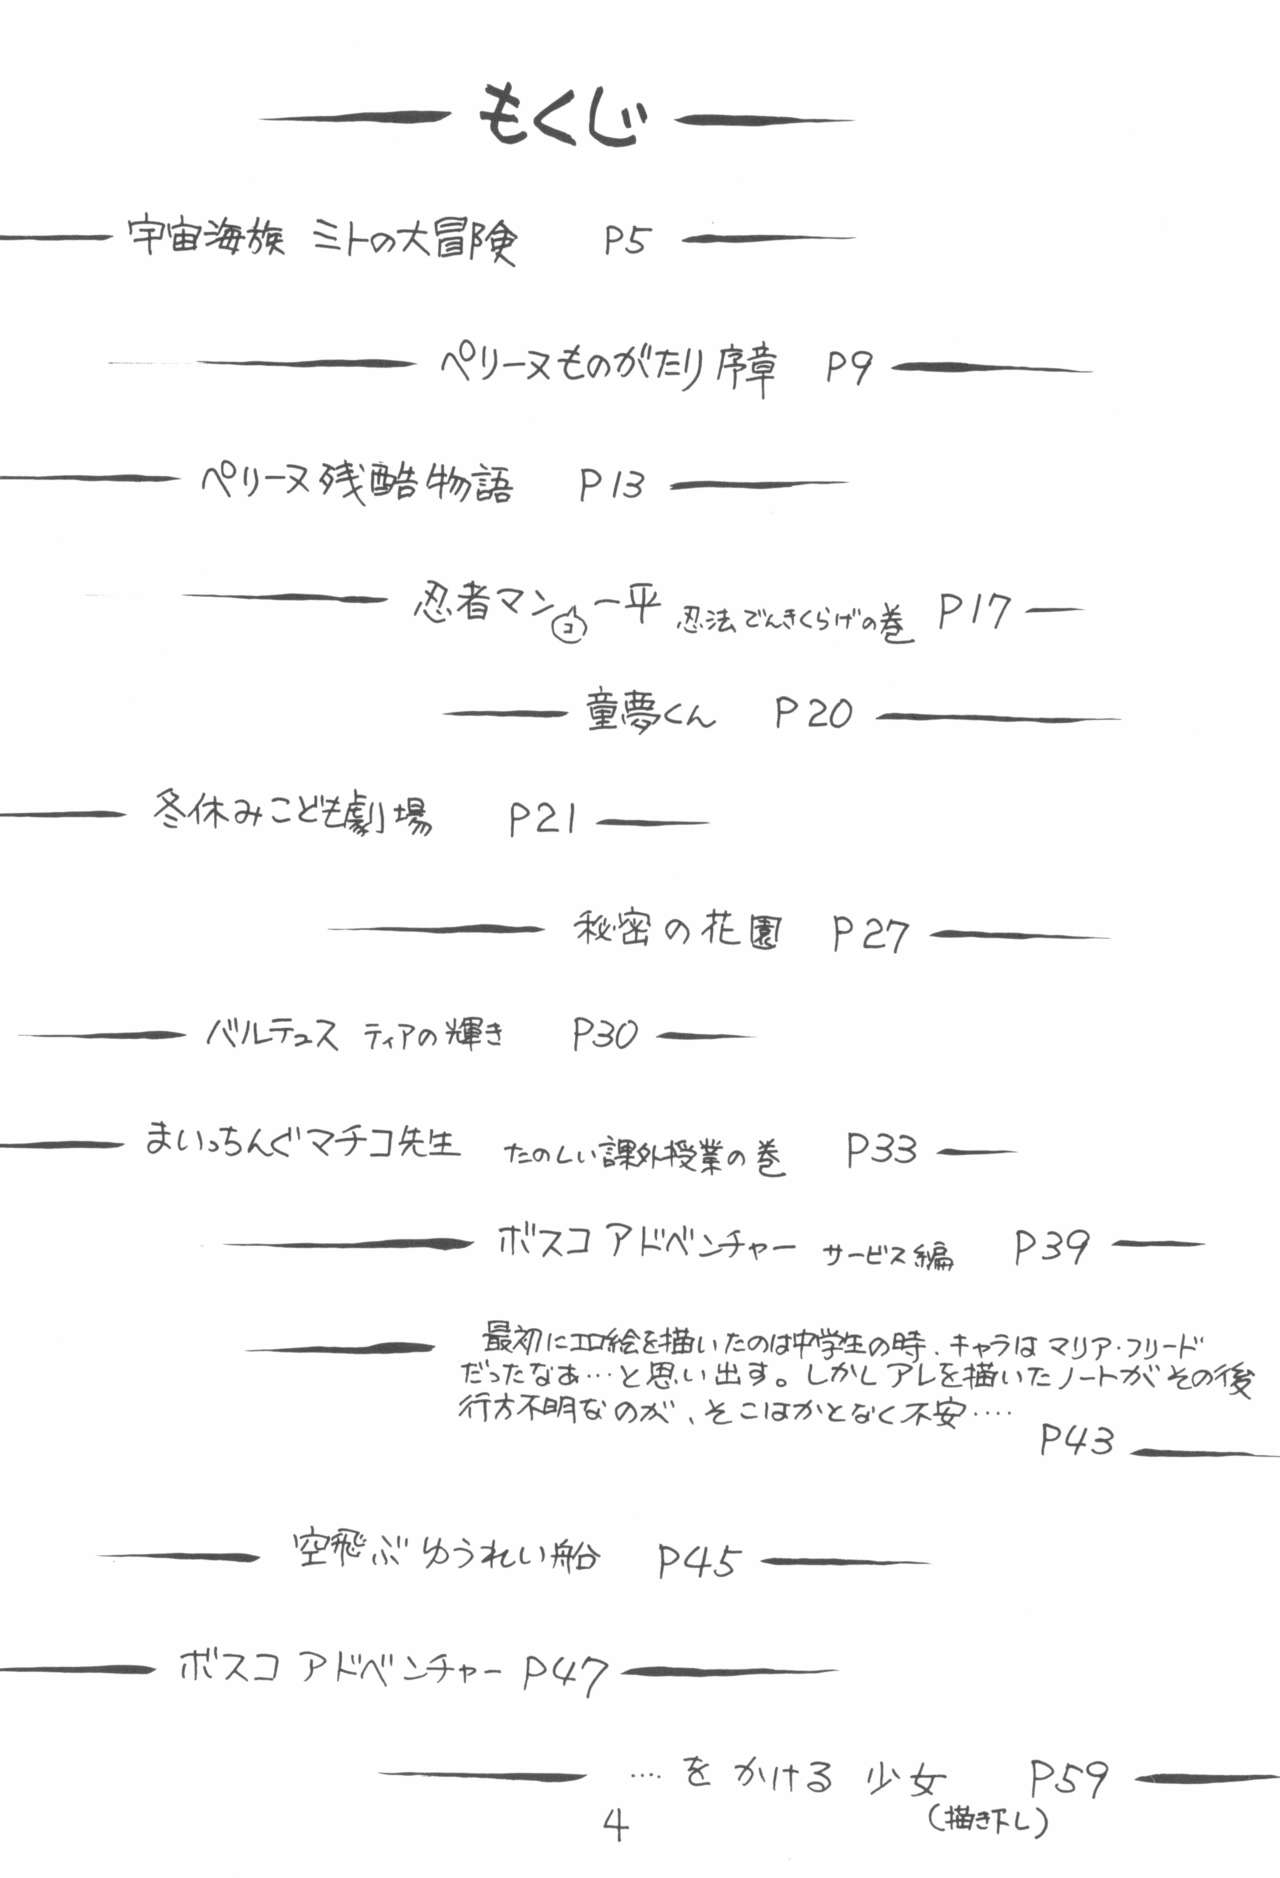 もくじ
宇宙海族 ミトの大冒険 P5
ペリーヌものがたり 序章 P9
ペリーヌ残酷物語 P13
忍者マンコ一平 忍法でんきくらげの巻 P17
童夢くん P20
冬休みこども劇場 P21
秘密の花園 P27
バルテュス ティアの輝き P30
まいっちんぐマチコ先生 たのしい課外授業の巻 P33
ボスコアドベンチャー サービス編 P39
最初にエロ絵を描いたのは中学生の時、キャラはマリア・フリード
だったなぁ…と思い出す。しかしアレを描いたノートがその後
行方不明なのが、そこはかとなく不安‥‥
P43
空飛ぶゆうれい船 P45
ボスコアドベンチャー P47
‥‥をかける少女 P59
(描き下し)
4